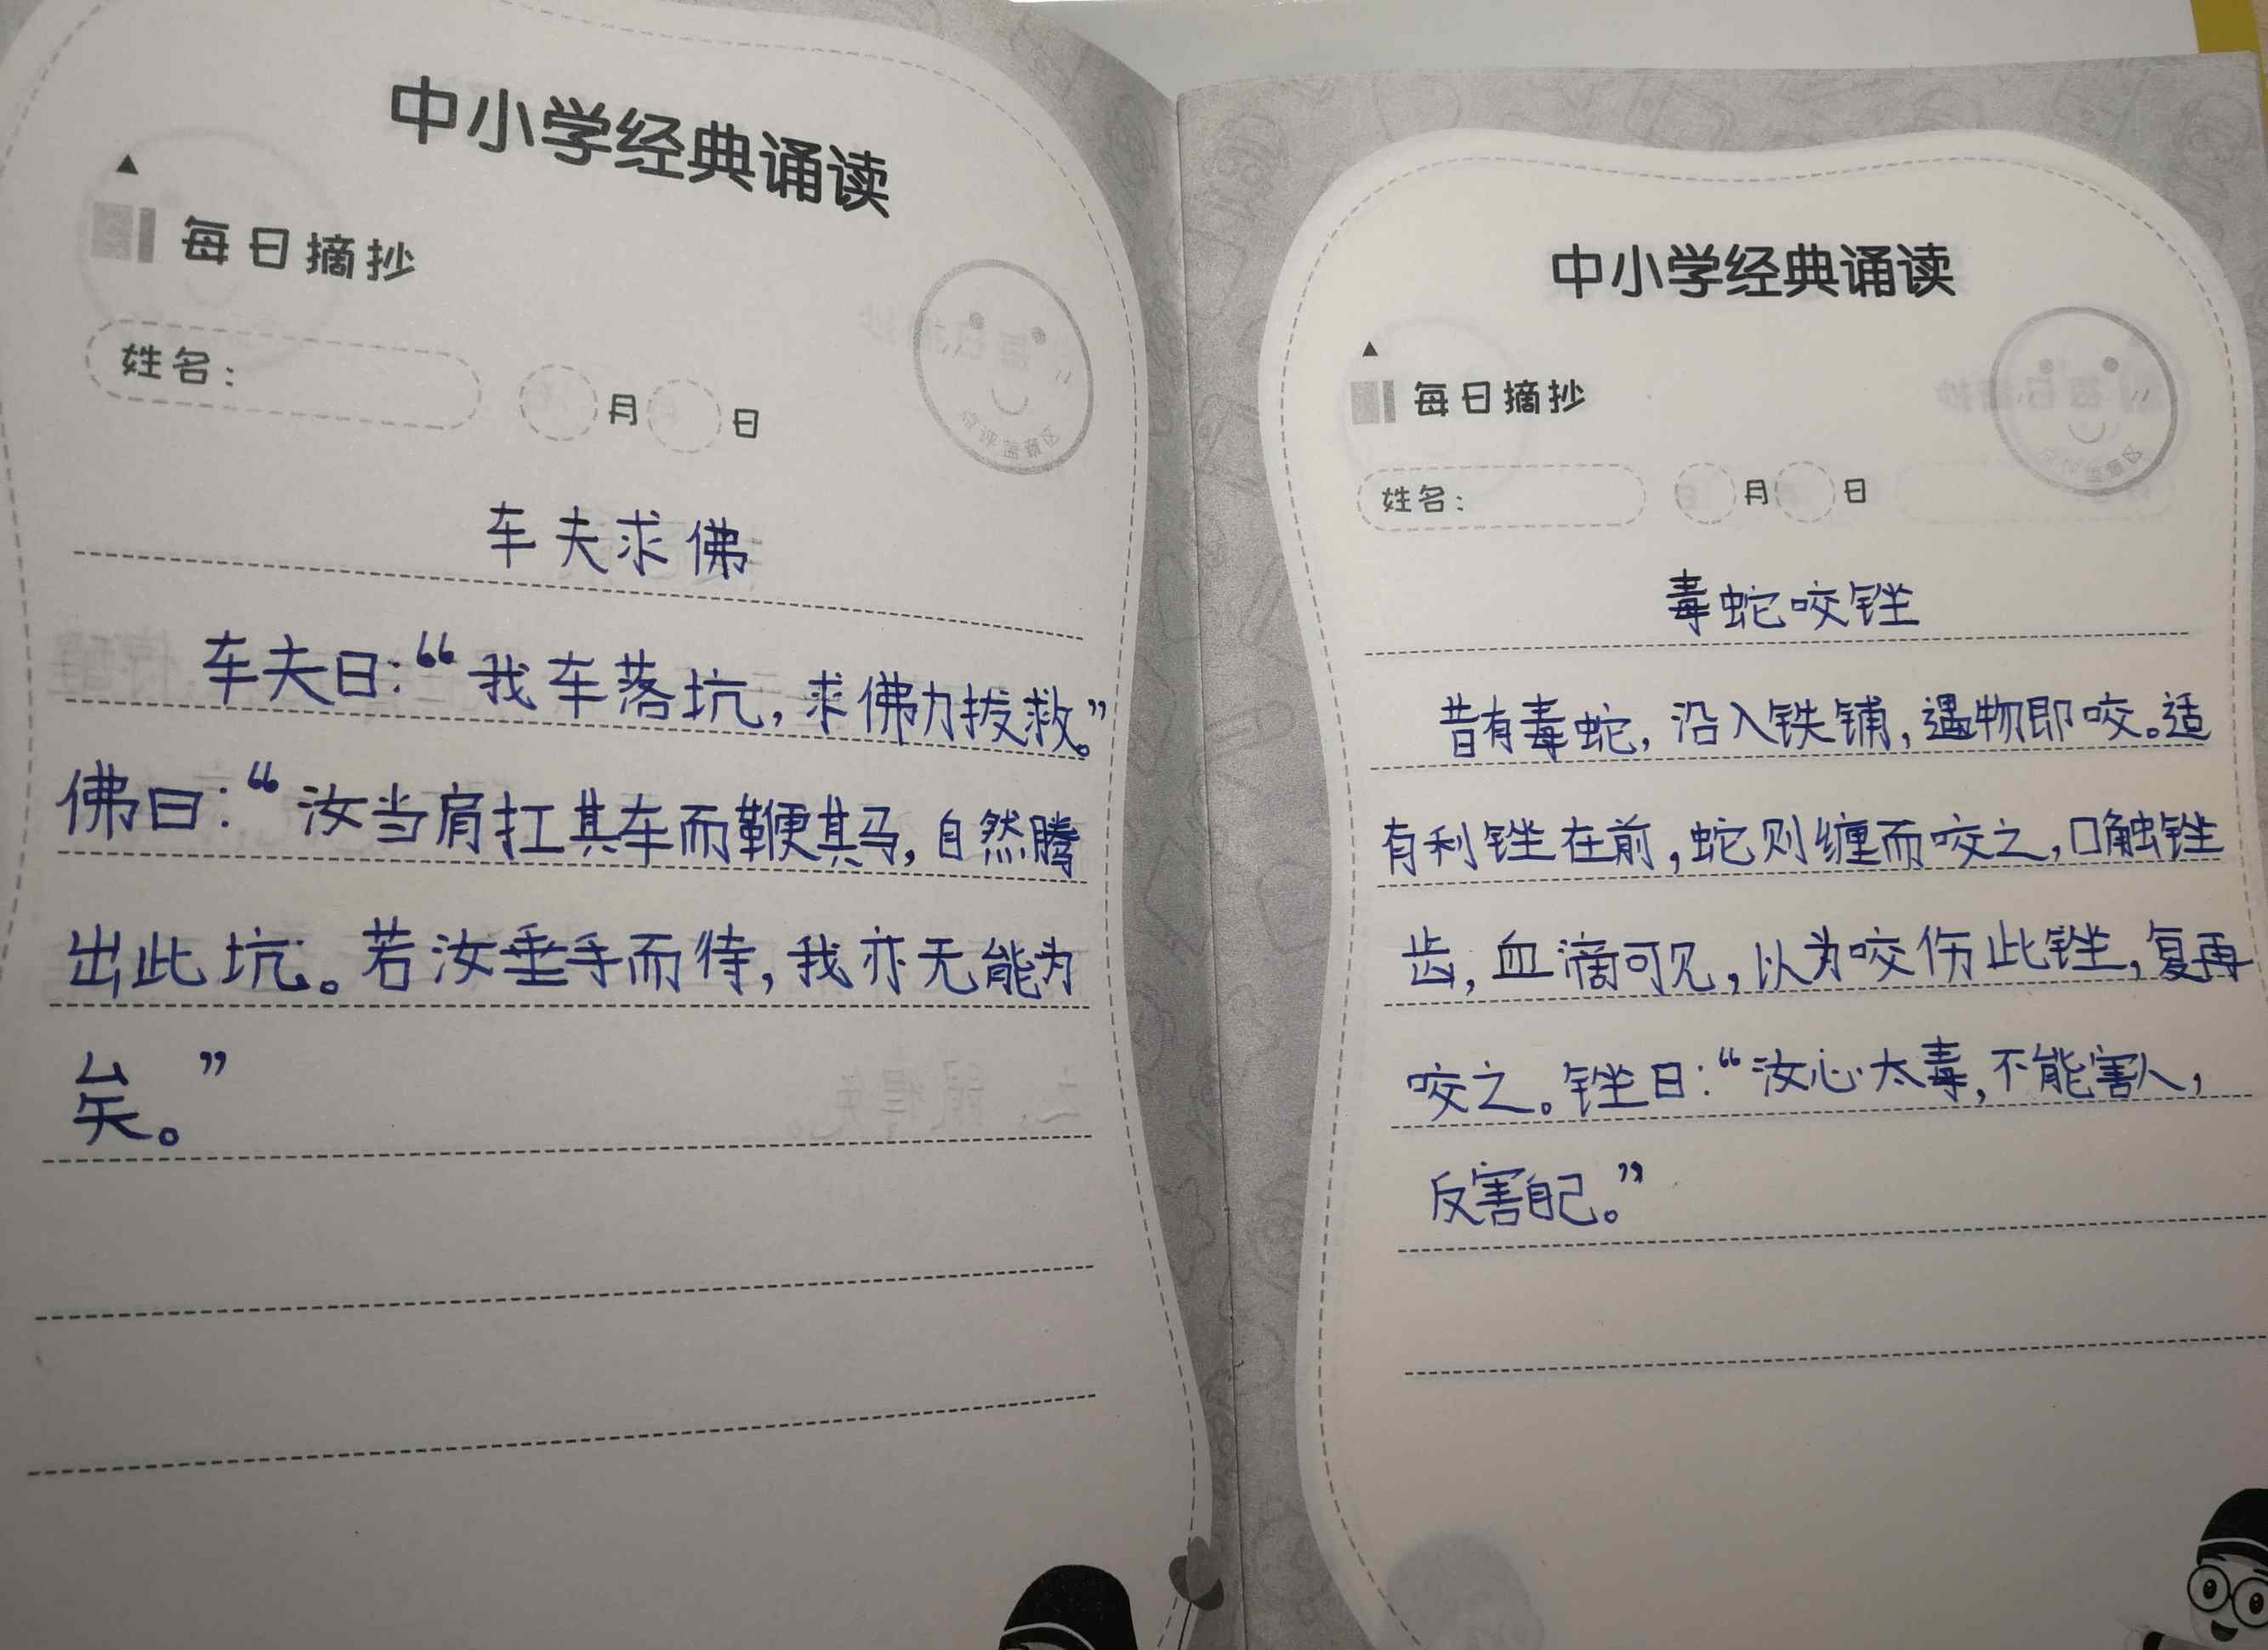 中小学经典诵读
每日摘抄
姓名：
月 日
车夫求佛
车夫曰：“我车落坑，求佛力拔救。”
佛曰：“汝当肩扛其车而鞭其马，自然腾
出此坑。若汝垂手而待，我亦无能为
矣。”
中小学经典诵读
每日摘抄
姓名：
月 日
毒蛇咬锉
昔有毒蛇，沿入铁铺，遇物即咬。适
有利锉在前，蛇则缠而咬之，口触锉
齿，血滴可见，以为咬伤此锉，复再
咬之。锉曰：“汝心太毒，不能害人，
反害自己。”